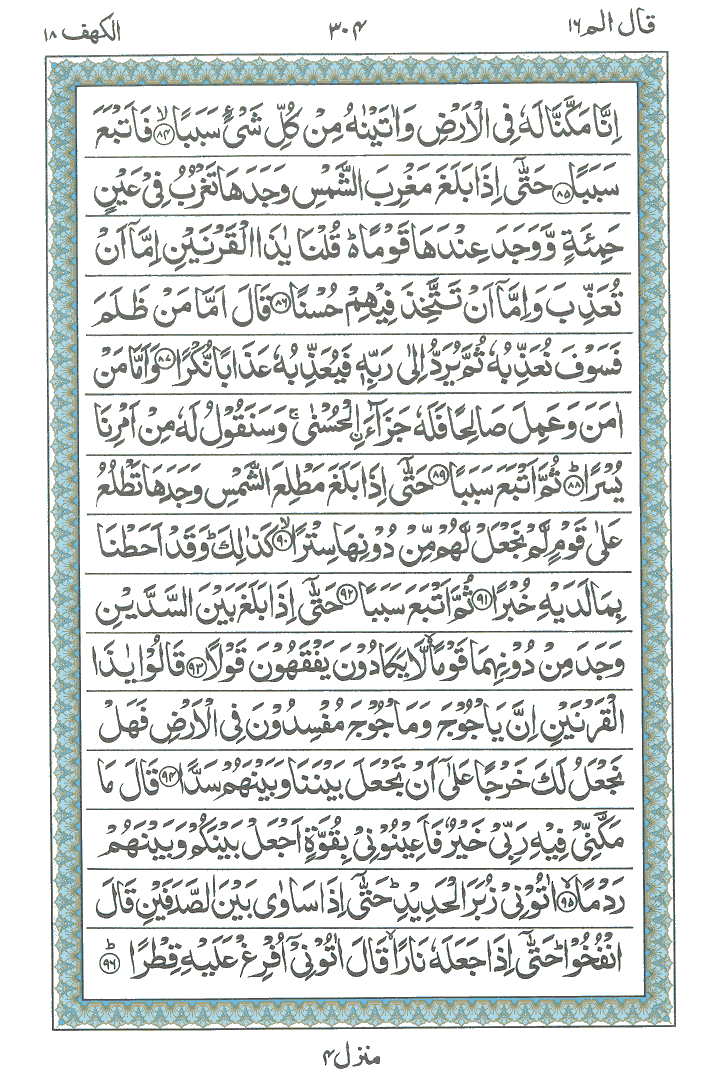 قال الم ١٦ ٣٠٤ الكهف ١٨
اِنَّا مَكَّنَّا لَهٗ فِی الْاَرْضِ وَاٰتَیْنٰهُ مِنْ كُلِّ شَیْءٍ سَبَبًا ۙ﴿۸۴﴾ فَاَتْبَعَ
سَبَبًا ﴿۸۵﴾ حَتّٰۤی اِذَا بَلَغَ مَغْرِبَ الشَّمْسِ وَجَدَهَا تَغْرُبُ فِیْ عَیْنٍ
حَمِئَةٍ وَّوَجَدَ عِنْدَهَا قَوْمًا ؕ۬ قُلْنَا یٰذَا الْقَرْنَیْنِ اِمَّاۤ اَنْ
تُعَذِّبَ وَاِمَّاۤ اَنْ تَتَّخِذَ فِیْهِمْ حُسْنًا ﴿۸۶﴾ قَالَ اَمَّا مَنْ ظَلَمَ
فَسَوْفَ نُعَذِّبُهٗ ثُمَّ یُرَدُّ اِلٰی رَبِّهٖ فَیُعَذِّبُهٗ عَذَابًا نُّكْرًا ﴿۸۷﴾ وَاَمَّا مَنْ
اٰمَنَ وَعَمِلَ صَالِحًا فَلَهٗ جَزَآءَ ۨالْحُسْنٰی ۚ وَسَنَقُوْلُ لَهٗ مِنْ اَمْرِنَا
یُسْرًا ؕ﴿۸۸﴾ ثُمَّ اَتْبَعَ سَبَبًا ﴿۸۹﴾ حَتّٰۤی اِذَا بَلَغَ مَطْلِعَ الشَّمْسِ وَجَدَهَا تَطْلُعُ
عَلٰی قَوْمٍ لَّمْ نَجْعَلْ لَّهُمْ مِّنْ دُوْنِهَا سِتْرًا ۙ﴿۹۰﴾ كَذٰلِكَ ؕ وَقَدْ اَحَطْنَا
بِمَا لَدَیْهِ خُبْرًا ﴿۹۱﴾ ثُمَّ اَتْبَعَ سَبَبًا ﴿۹۲﴾ حَتّٰۤی اِذَا بَلَغَ بَیْنَ السَّدَّیْنِ
وَجَدَ مِنْ دُوْنِهِمَا قَوْمًا ۙ لَّا یَكَادُوْنَ یَفْقَهُوْنَ قَوْلًا ﴿۹۳﴾ قَالُوْا یٰذَا
الْقَرْنَیْنِ اِنَّ یَاْجُوْجَ وَمَاْجُوْجَ مُفْسِدُوْنَ فِی الْاَرْضِ فَهَلْ
نَجْعَلُ لَكَ خَرْجًا عَلٰۤی اَنْ تَجْعَلَ بَیْنَنَا وَبَیْنَهُمْ سَدًّا ﴿۹۴﴾ قَالَ مَا
مَكَّنِّیْ فِیْهِ رَبِّیْ خَیْرٌ فَاَعِیْنُوْنِیْ بِقُوَّةٍ اَجْعَلْ بَیْنَكُمْ وَبَیْنَهُمْ
رَدْمًا ۙ﴿۹۵﴾ اٰتُوْنِیْ زُبَرَ الْحَدِیْدِ ؕ حَتّٰۤی اِذَا سَاوٰی بَیْنَ الصَّدَفَیْنِ قَالَ
انْفُخُوْا ؕ حَتّٰۤی اِذَا جَعَلَهٗ نَارًا ۙ قَالَ اٰتُوْنِیْۤ اُفْرِغْ عَلَیْهِ قِطْرًا ؕ﴿۹۶﴾
منزل ۴